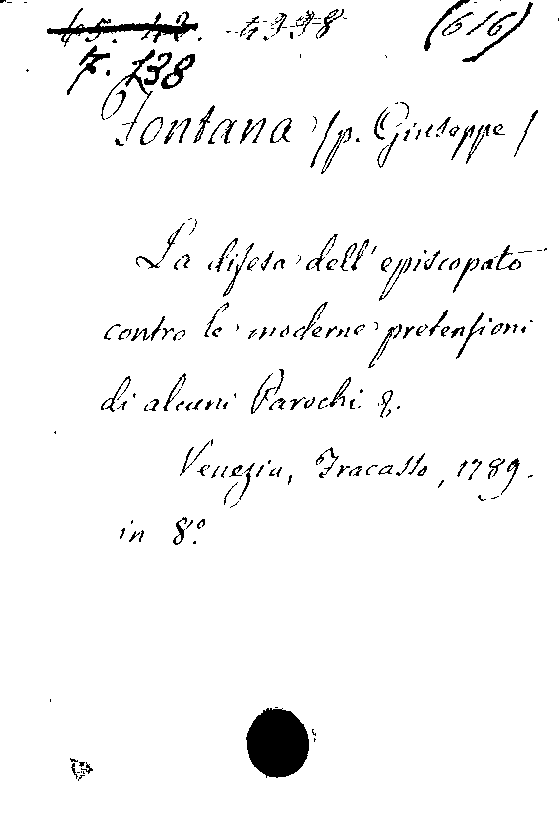 45. 42. 4998 (616)
7. 138
Fontana /p. Giuseppe/
La difesa dell'episcopato
contro le moderne pretensioni
di alcuni Parochi &.
Venezia, Fracasso, 1789.
in 8.º